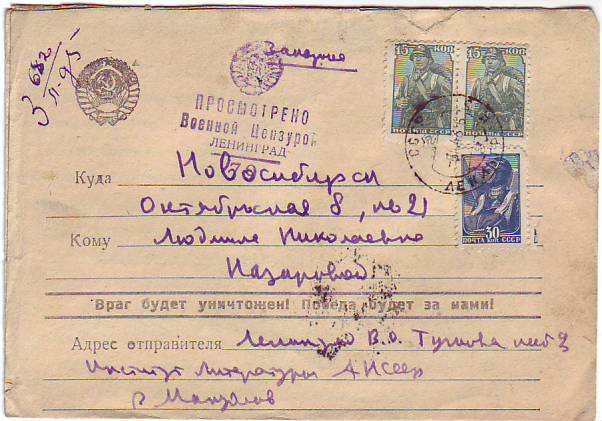 З 682
п. 95
Заказное
ПРОСМОТРЕНО
Военной Цензурой
ЛЕНИНГРАД
15 КОП
15 КОП
ПОЧТА СССР
ПОЧТА СССР
30 КОП
ПОЧТА СССР
Куда Новосибирск
Октябрьская 8, 21
Кому Людмиле Николаевне
Назаровой
Враг будет уничтожен! Победа будет за нами!
Адрес отправителя Ленинград В.О. Тучкова наб
Институт Литературы АН СССР